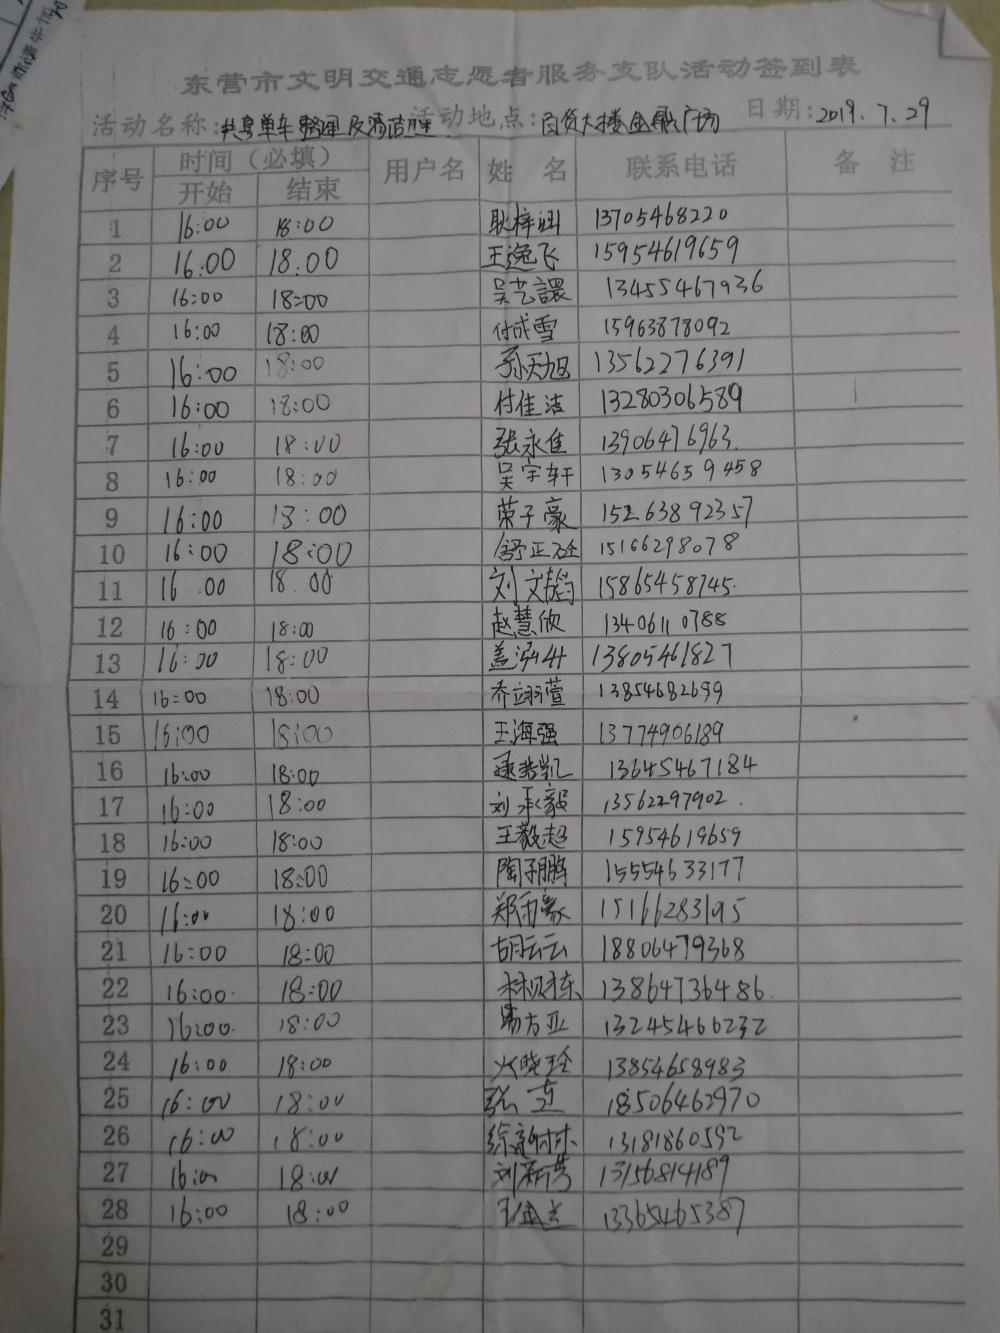 东营市文明交通志愿者服务支队活动签到表
活动名称:共享单车整理及清洁 活动地点:百货大楼金融广场 日期:2019.7.29
序号 时间(必填) 用户名 姓 名 联系电话 备 注
开始 结束
1 16:00 18:00 耿梓涵 13705468220
2 16:00 18:00 王逸飞 15954619659
3 16:00 18:00 吴艺譞 13455467936
4 16:00 18:00 付成雪 15963878092
5 16:00 18:00 孙天旭 13562276391
6 16:00 18:00 付佳洁 13280306589
7 16:00 18:00 张永佳 13906476963.
8 16:00 18:00 吴宇轩 13054659458
9 16:00 18:00 荣子豪 15263892357
10 16:00 18:00 舒正 15166298078
11 16:00 18:00 刘文韬 15865458745.
12 16:00 18:00 赵慧欣 13406110788
13 16:00 18:00 盖泓 13805461827
14 16:00 18:00 乔翊萱 13854682699
15 16:00 18:00 王海强 13774906189
16 16:00 18:00 凯 13645467184
17 16:00 18:00 刘承毅 13562297902.
18 16:00 18:00 王毅超 15954619659
19 16:00 18:00 陶子鹏 15554633177
20 16:00 18:00 郑雨豪 15166283195
21 16:00 18:00 胡云云 18806479368
22 16:00 18:00 13864736486.
23 16:00 18:00 方亚 13245466232
24 16:00 18:00 火晓玲 13854658983
25 16:00 18:00 张 18506462970
26 16:00 18:00 徐 13181860592
27 16:00 18:00 刘新芳 13156814189
28 16:00 18:00 王 兰 13365465387
29
30
31